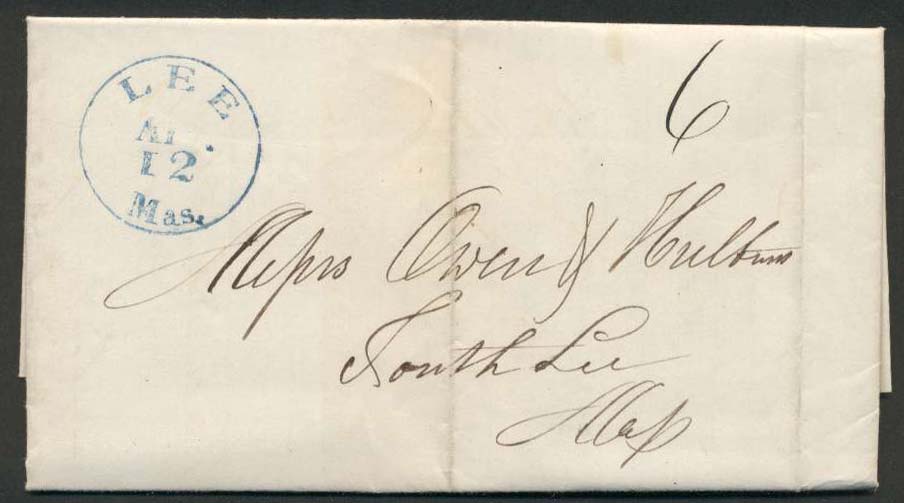 LEE
12
Mas.
6
Messrs Owen & Hulburt
South Lee
Mass